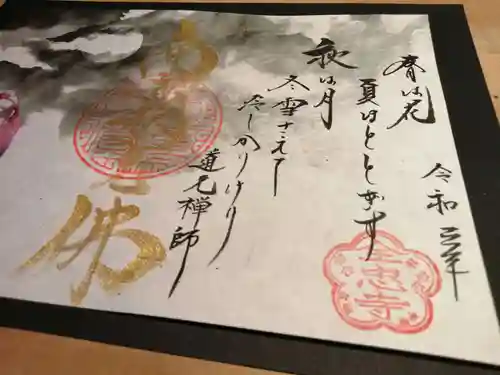 春は花
夏ほととぎす
秋は月
冬雪さえて
冷しかりけり
道元禅師
令和三年
佛